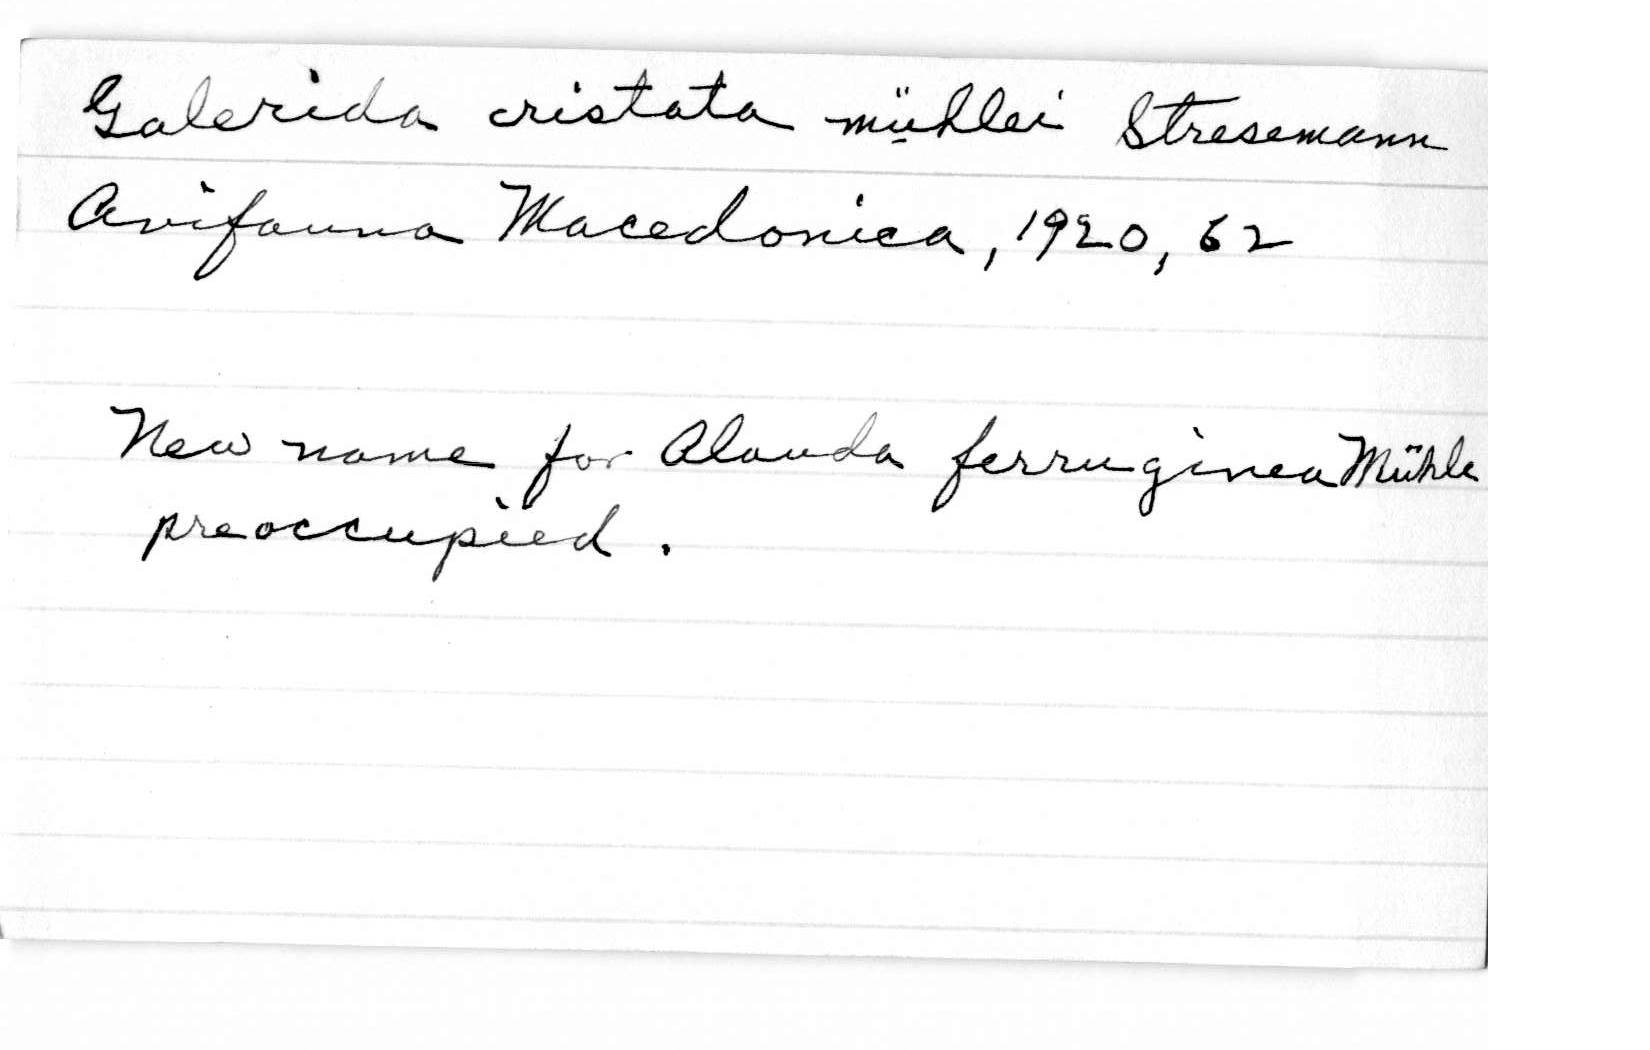 Galerida cristata mühlei Stresemann
Avifauna Macedonica, 1920, 62
New name for Alauda ferruginea Mühle
preoccupied.